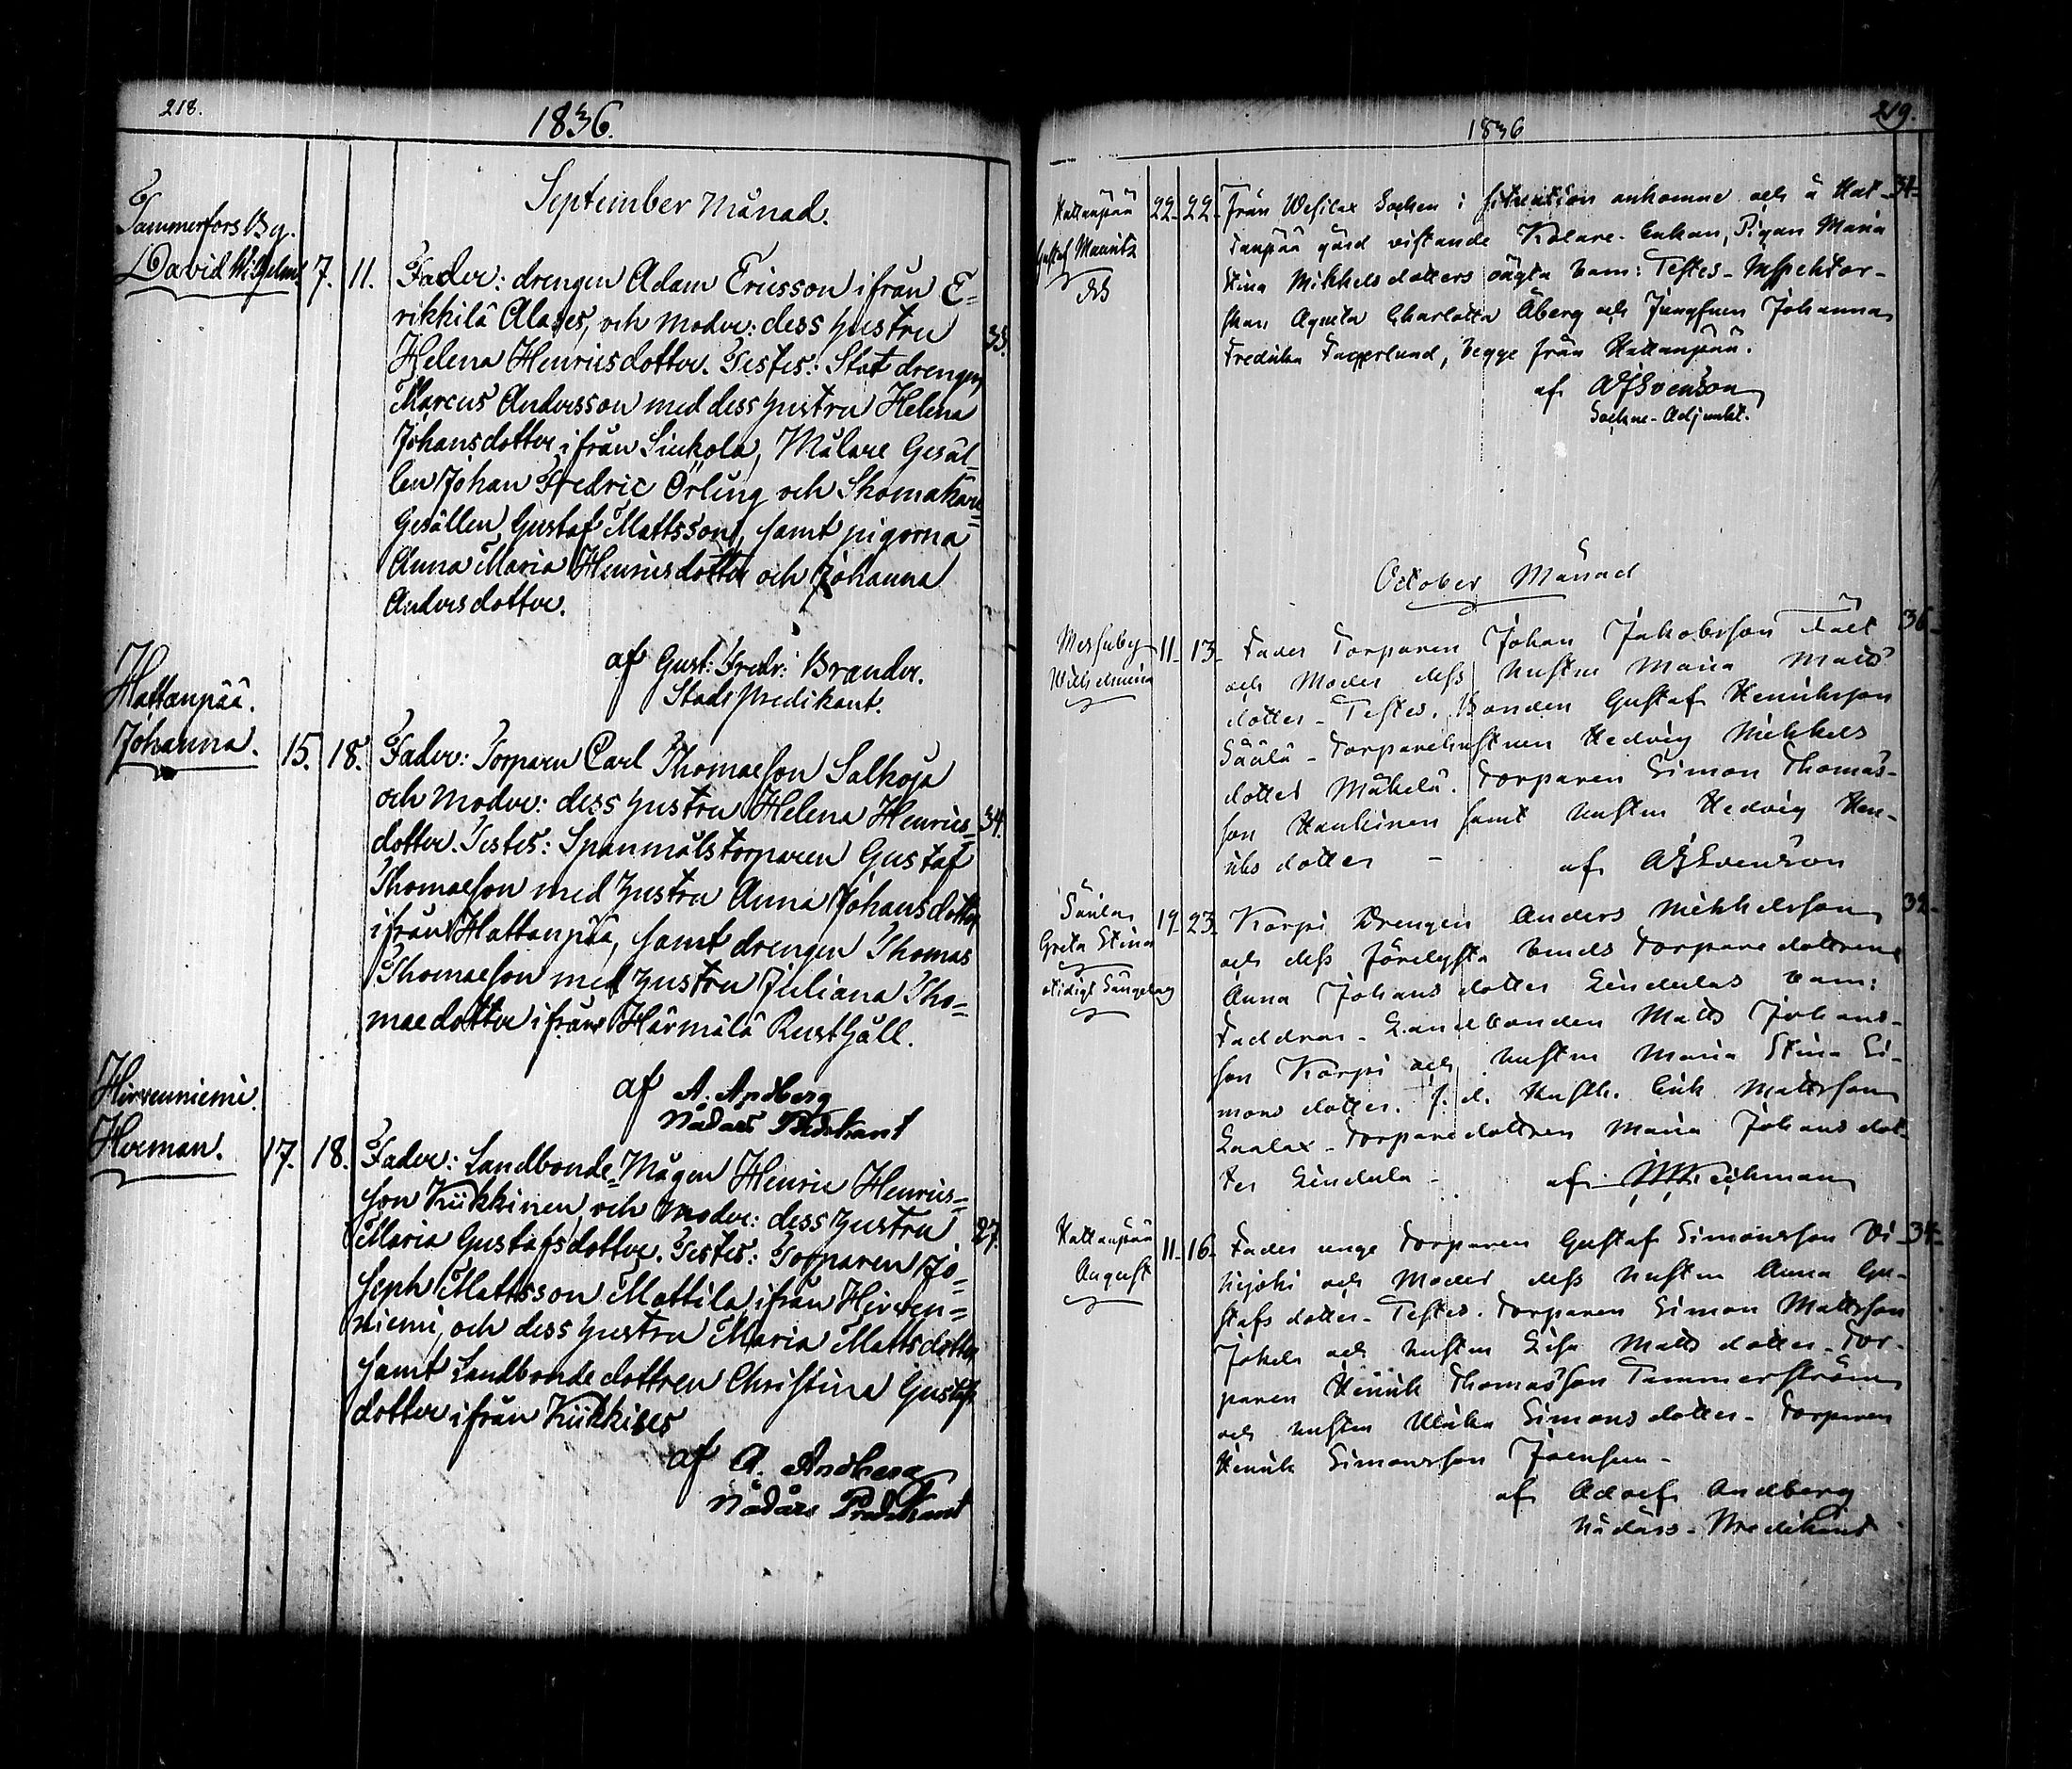 218.
1836.
September Månad.
Tammerfors By.
David Wilhelm. 7. 11. Fader: drengen Adam Ericsson ifrån E=
rikkilä Alases, och moder: dess hustru 33.
Helena Henricsdotter. Testes: Stat drengen
Marcus Andersson med dess hustru Helena
Johansdotter ifrån Sinkola, Målare Gesäl=
len Johan Fredric Örling och Skomakare=
Gesällen Gustaf Mattsson, samt pigorna
Anna Maria Henricsdotter och Johanna
Andersdotter.
af Gust: Fredr: Brander.
Stads predikant.
Hattanpää.
Johanna. 15. 18. Fader: Torparen Carl Thomasson Salkoja
och moder: dess hustru Helena Henrics= 34.
dotter. Testes: Spanmålstorparen Gustaf
Thomasson med hustru Anna Johansdotter
ifrån Hattanpää, samt drengen Thomas
Thomasson med hustru Juliana Tho=
maedotter ifrån Härmälä Rusthåll.
af A. Andberg
Nådårs Predikant
Hirvenniemi.
Herman. 17. 18. Fader: Landbonde=Mågen Henric Henrics=
son Kiikkinen och moder: dess hustru 27.
Maria Gustafsdotter. Testes: Torparen Jo=
seph Mattsson Mattila ifrån Hirven=
niemi, och dess hustru Maria Mattsdotter
samt Landbonde dottren Christina Gustafs
dotter ifrån Kiikkises
af A. Andberg
Nådårs Predikant
219.
1836
Hattanpää 22 22 Från Wesilax Socken i situation ankomne och å Hat- 31
Gustaf Mauritz tanpää gård vistande Kolare-Enkan, Pigan Maria
Stina Mikkelsdotters oägta barn: Testes- Inspektor-
skan Agneta Charlotta Åberg och Jungfrun Johanna
Fredrika Fagerlund, begge från Hattanpää.
af Svenson
Sockne-Adjunkt.
October Månad
Messuby 11 13 Fader Torparen Johan Jakobsson Fält 36
Wilhelmina och Moder dess hustru Maria Matts
dotter- Testes. Bonden Gustaf Henriksson
Säälä - Torparehustrun Hedvig Mikkels
dotter Mäkelä. Torparen Simon Thomas-
son Haukinen samt hustru Hedvig Hen-
riks dotter - af Svenson
Greta Stina 19 23 Korpi Drengen Anders Mikkelsson 32
otidigt Sängelag och dess förelysta bruds Torparedottrens
Anna Johans dotter Lindulas barn:
Faddrar- Landbonden Matts Johans-
son Korpi och hustru Maria Stina Si-
mons dotter. f.d. Rusth. Erik Mattsson
Laalax - Torparedottren Maria Johans dot-
ter Lindula - af
Hattanpää 11 16 Fader unge Torparen Gustaf Simonsson Vi- 34
August och Moder dess hustru Anna Gu-
stafs dotter- Testes. Torparen Simon Mattsson
Jokela och hustru Lisa Matts dotter- Tor-
paren Henrik Thomasson Tammerström
och hustru Ulrika Simons dotter- Torparen
Henrik Simonsson Joensuu -
af Adolf Andberg
Nådårs-Predikant